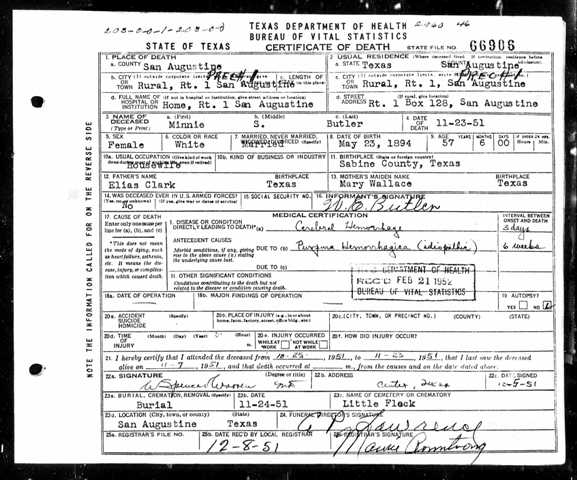 203-00-1-203-00
TEXAS DEPARTMENT OF HEALTH
BUREAU OF VITAL STATISTICS
STATE OF TEXAS
CERTIFICATE OF DEATH
STATE FILE NO. 66906
1. PLACE OF DEATH
a. COUNTY San Augustine
2. USUAL RESIDENCE
a. STATE Texas
San Augustine
Rural, Rt. 1 San Augustine
Rural, Rt. 1, San Augustine
PRECH 1
d. FULL NAME OF HOSPITAL OR INSTITUTION Home, Rt. 1 San Augustine
d. STREET ADDRESS Rt. 1 Box 128, San Augustine
3. NAME OF DECEASED (Type or Print)
a. (First) Minnie
b. (Middle) S.
c. (Last) Butler
4. DATE OF DEATH 11-23-51
5. SEX Female
6. COLOR OR RACE White
7. MARRIED, NEVER MARRIED, Married
8. DATE OF BIRTH May 23, 1894
9. AGE 57 6 00
10a. USUAL OCCUPATION Housewife
10b. KIND OF BUSINESS OR INDUSTRY
11. BIRTHPLACE (State or foreign country) Sabine County, Texas
12. FATHER'S NAME Elias Clark
BIRTHPLACE Texas
13. MOTHER'S MAIDEN NAME Mary Wallace
BIRTHPLACE Texas
14. WAS DECEASED EVER IN U.S. ARMED FORCES? No
15. SOCIAL SECURITY NO.
16. INFORMANT'S SIGNATURE
Butler
17. CAUSE OF DEATH
Enter only one cause per line for (a), (b), and (c)
MEDICAL CERTIFICATION
INTERVAL BETWEEN ONSET AND DEATH
I. DISEASE OR CONDITION DIRECTLY LEADING TO DEATH (a) Cerebral Hemorrhage
3 days
ANTECEDENT CAUSES
DUE TO (b) Purpura Hemorrhagica (idiopathic)
6 weeks
*This does not mean the mode of dying, such as heart failure, asthenia, etc. It means the disease, injury, or complication which caused death.
Morbid conditions, if any, giving rise to the above cause (a) stating the underlying cause last.
DUE TO (c)
II. OTHER SIGNIFICANT CONDITIONS
Conditions contributing to the death but not related to the disease or condition causing death.
DEPARTMENT OF HEALTH
REC'D FEB 21 1952
BUREAU OF VITAL STATISTICS
18a. DATE OF OPERATION
18b. MAJOR FINDINGS OF OPERATION
19. AUTOPSY?
YES NO
20a. ACCIDENT SUICIDE HOMICIDE (Specify)
20b. PLACE OF INJURY
20c. (CITY, TOWN, OR PRECINCT NO.) (COUNTY) (STATE)
20d. TIME OF INJURY
20e. INJURY OCCURRED
WHILE AT WORK NOT WHILE AT WORK
20f. HOW DID INJURY OCCUR?
21. I hereby certify that I attended the deceased from 10-25 1951, to 11-23 1951, that I last saw the deceased
alive on 11-7 1951, and that death occurred at m., from the causes and on the date stated above.
22a. SIGNATURE
(Degree or title)
22b. ADDRESS
Center, Texas
22c. DATE SIGNED
23a. BURIAL, CREMATION, REMOVAL (Specify) Burial
23b. DATE 11-24-51
23c. NAME OF CEMETERY OR CREMATORY Little Flock
23d. LOCATION (City, town, or county) (State)
San Augustine Texas
24. FUNERAL DIRECTOR'S SIGNATURE
25a. REGISTRAR'S FILE NO.
25b. DATE REC'D BY LOCAL REGISTRAR 12-8-51
25c. REGISTRAR'S SIGNATURE
Armstrong
NOTE THE INFORMATION CALLED FOR ON THE REVERSE SIDE